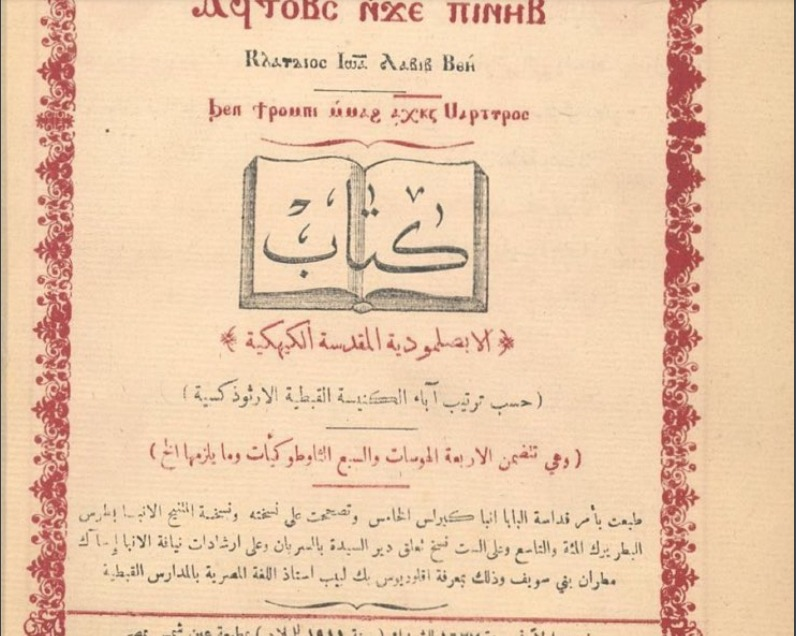 ⲁϥⲧⲟⲃⲥ ⲛ̀ϫⲉ ⲡⲓⲛⲏⲃ
Ⲕⲗⲁⲩⲇⲓⲟⲥ Ⲓⲱ̅ⲁ̅ Ⲗⲁⲃⲓⲃ Ⲃⲉⲏ
ϧⲉⲛ ϯⲣⲟⲙⲡⲓ ⲙ̀ⲙⲁϩ
كتاب
الابصلمودية المقدسة الكيهكية
(حسب ترتيب آباء الكنيسة القبطية الارثوذكسية)
(وهي تتضمن الاربعة الهوسات والسبع الثاوطوكيات وما يلزمها الخ)
طبعت بأمر قداسة البابا انبا كيرلس الخامس وتصححت على نسخته ونسخة المتنيح الانبا بطرس
البطريرك المئة والتاسع وعلى الست نسخ تعلق دير السيدة بالسريان وعلى ارشادات نيافة الانبا إيساك
مطران بني سويف وذلك بمعرفة اقلوديوس بك لبيب استاذ اللغة المصرية بالمدارس القبطية